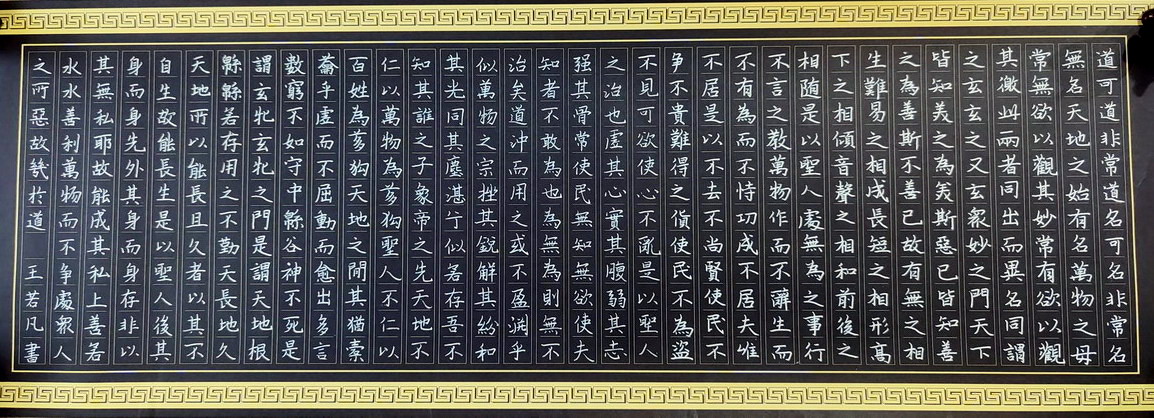 道可道非常道名可名非常名
無名天地之始有名萬物之母
常無欲以觀其妙常有欲以觀
其徼此兩者同出而異名同謂
之玄玄之又玄衆妙之門天下
皆知美之為美斯惡已皆知善
之為善斯不善已故有無之相
生難易之相成長短之相形高
下之相傾音聲之相和前後之
相随是以聖人處無為之事行
不言之教萬物作而不辭生而
不有為而不恃功成不居夫唯
不居是以不去不尚賢使民不
爭不貴難得之貨使民不為盜
不見可欲使心不亂是以聖人
之治也虚其心實其腹弱其志
强其骨常使民無知無欲使夫
知者不敢為也為無為則無不
治矣道沖而用之或不盈淵乎
似萬物之宗挫其銳解其紛和
其光同其塵湛兮似若存吾不
知其誰之子象帝之先天地不
仁以萬物為芻狗聖人不仁以
百姓為芻狗天地之間其猶橐
籥乎虚而不屈動而愈出多言
數窮不如守中緜谷神不死是
謂玄牝玄牝之門是謂天地根
緜緜若存用之不勤天長地久
天地所以能長且久者以其不
自生故能長生是以聖人後其
身而身先外其身而身存非以
其無私耶故能成其私上善若
水水善利萬物而不爭處衆人
之所惡故幾於道 王若凡書